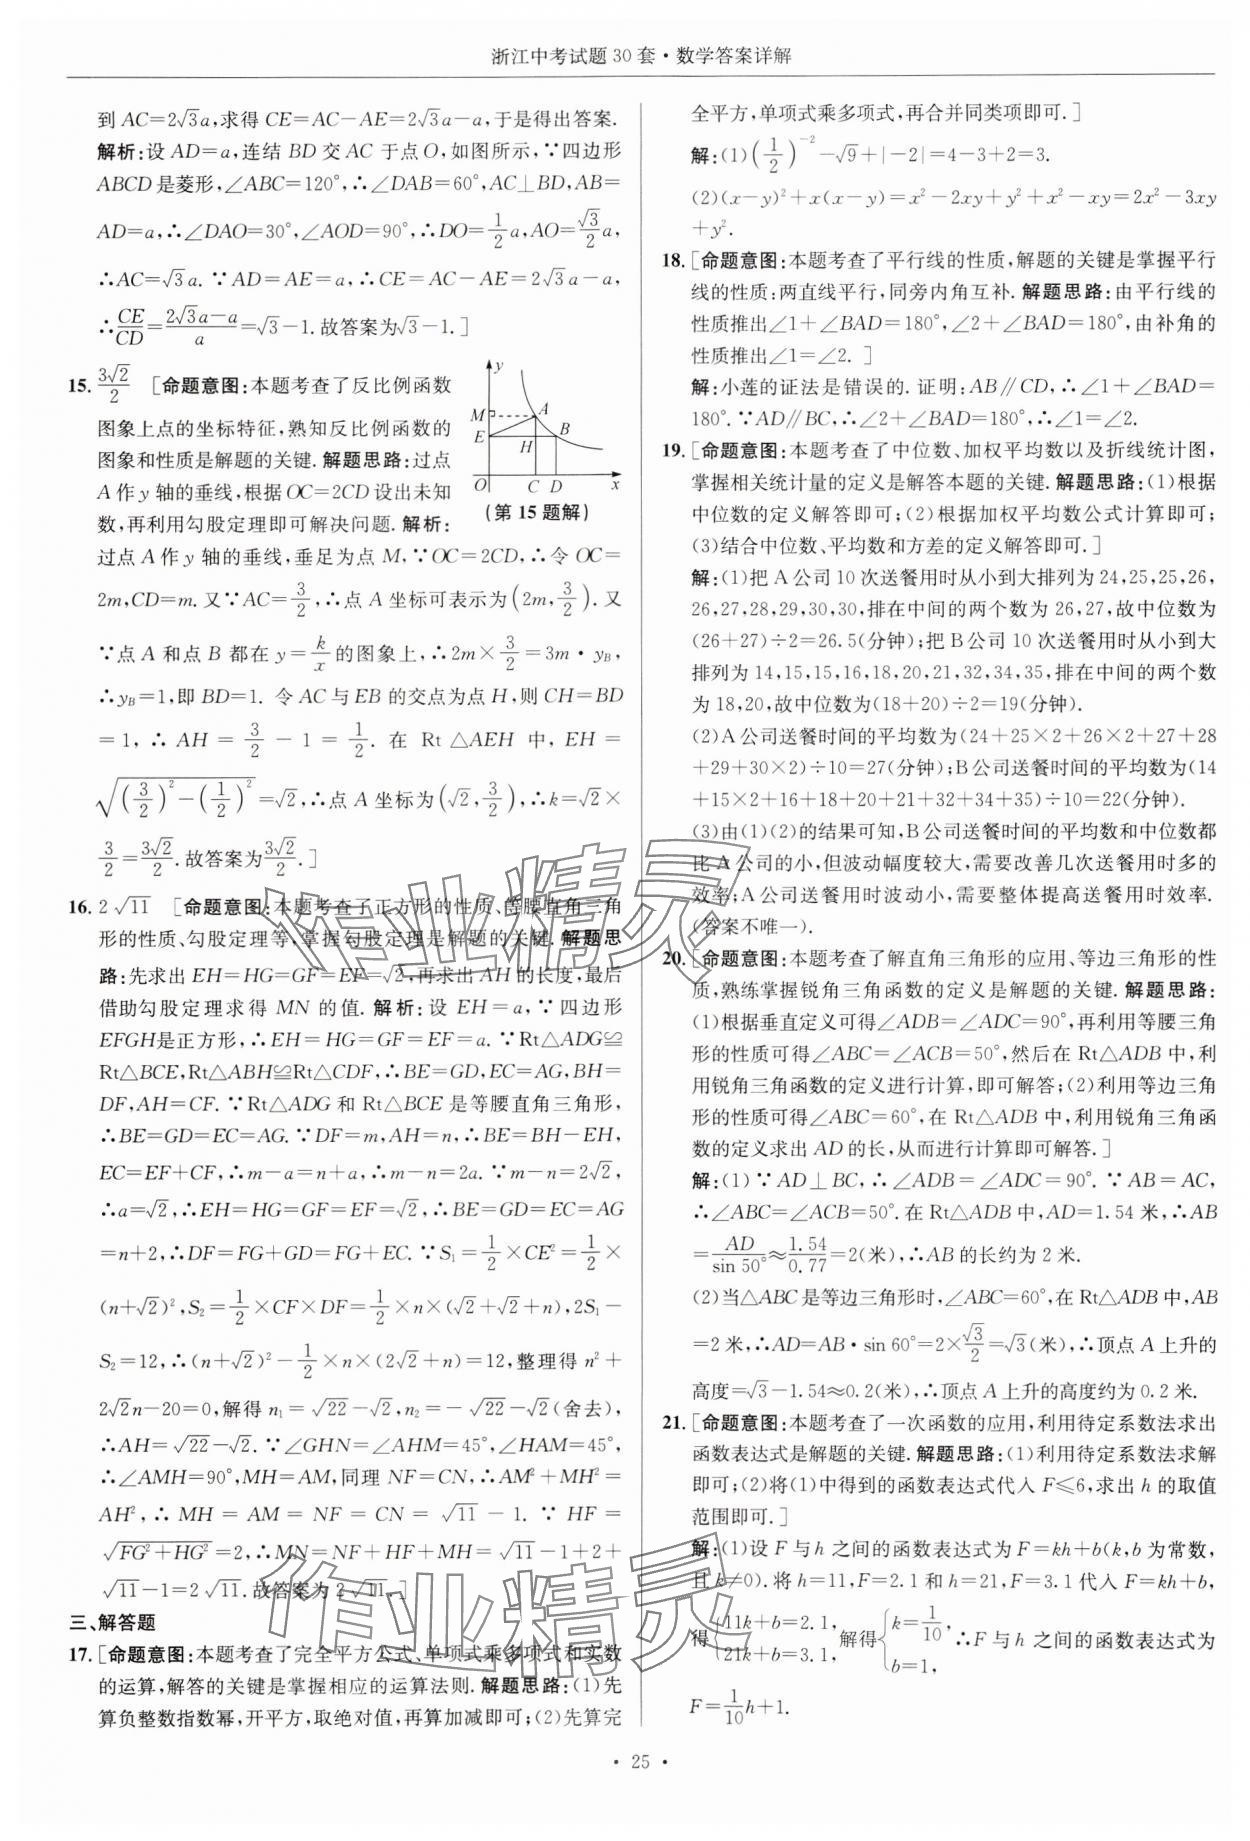 浙江中考试题30套·数学答案详解
到AC=2√3a,求得CE=AC-AE=2√3a-a,于是得出答案.
解析:设AD=a,连结BD交AC于点O,如图所示,∵四边形
ABCD是菱形,∠ABC=120°,∴∠DAB=60°,AC⊥BD,AB=
AD=a,∴∠DAO=30°,∠AOD=90°,∴DO=1/2a,AO=√3/2a,
∴AC=√3a.∵AD=AE=a,∴CE=AC-AE=2√3a-a,
∴CE/CD=(2√3a-a)/a=√3-1.故答案为√3-1.]
15. 3√2/2 [命题意图:本题考查了反比例函数
图象上点的坐标特征,熟知反比例函数的
图象和性质是解题的关键.解题思路:过点
A作y轴的垂线,根据OC=2CD设出未知
数,再利用勾股定理即可解决问题.解析:
y
M
A
E
B
H
O
C
D
x
(第15题解)
过点A作y轴的垂线,垂足为点M,∵OC=2CD,∴令OC=
2m,CD=m.又∵AC=3/2,∴点A坐标可表示为(2m,3/2).又
∵点A和点B都在y=k/x的图象上,∴2m×3/2=3m·y_B,
∴y_B=1,即BD=1.令AC与EB的交点为点H,则CH=BD
=1,∴AH=3/2-1=1/2.在Rt△AEH中,EH=
√((3/2)²-(1/2)²)=√2,∴点A坐标为(√2,3/2),∴k=√2×
3/2=3√2/2.故答案为3√2/2.]
16. 2√11 [命题意图:本题考查了正方形的性质、等腰直角三角
形的性质、勾股定理等,掌握勾股定理是解题的关键.解题思
路:先求出EH=HG=GF=EF=√2,再求出AH的长度,最后
借助勾股定理求得MN的值.解析:设EH=a,∵四边形
EFGH是正方形,∴EH=HG=GF=EF=a.∵Rt△ADG≌
Rt△BCE,Rt△ABH≌Rt△CDF,∴BE=GD,EC=AG,BH=
DF,AH=CF.∵Rt△ADG和Rt△BCE是等腰直角三角形,
∴BE=GD=EC=AG.∵DF=m,AH=n,∴BE=BH-EH,
EC=EF+CF,∴m-a=n+a,∴m-n=2a.∵m-n=2√2,
∴a=√2,∴EH=HG=GF=EF=√2,∴BE=GD=EC=AG
=n+2,∴DF=FG+GD=FG+EC.∵S₁=1/2×CE²=1/2×
(n+√2)²,S₂=1/2×CF×DF=1/2×n×(√2+√2+n),2S₁-
S₂=12,∴(n+√2)²-1/2×n×(2√2+n)=12,整理得n²+
2√2n-20=0,解得n₁=√22-√2,n₂=-√22-√2(舍去),
∴AH=√22-√2.∵∠GHN=∠AHM=45°,∠HAM=45°,
∴∠AMH=90°,MH=AM,同理NF=CN,∴AM²+MH²=
AH²,∴MH=AM=NF=CN=√11-1.∵HF=
√(FG²+HG²)=2,∴MN=NF+HF+MH=√11-1+2+
√11-1=2√11.故答案为2√11.]
三、解答题
17. [命题意图:本题考查了完全平方公式、单项式乘多项式和实数
的运算,解答的关键是掌握相应的运算法则.解题思路:(1)先
算负整数指数幂,开平方,取绝对值,再算加减即可;(2)先算完
全平方,单项式乘多项式,再合并同类项即可.]
解:(1)(1/2)⁻²-√9+|-2|=4-3+2=3.
(2)(x-y)²+x(x-y)=x²-2xy+y²+x²-xy=2x²-3xy
+y².
18. [命题意图:本题考查了平行线的性质,解题的关键是掌握平行
线的性质:两直线平行,同旁内角互补.解题思路:由平行线的
性质推出∠1+∠BAD=180°,∠2+∠BAD=180°,由补角的
性质推出∠1=∠2.]
解:小莲的证法是错误的.证明:AB∥CD,∴∠1+∠BAD=
180°.∵AD∥BC,∴∠2+∠BAD=180°,∴∠1=∠2.
19. [命题意图:本题考查了中位数、加权平均数以及折线统计图,
掌握相关统计量的定义是解答本题的关键.解题思路:(1)根据
中位数的定义解答即可;(2)根据加权平均数公式计算即可;
(3)结合中位数、平均数和方差的定义解答即可.]
解:(1)把A公司10次送餐用时从小到大排列为24,25,25,26,
26,27,28,29,30,30,排在中间的两个数为26,27,故中位数为
(26+27)÷2=26.5(分钟);把B公司10次送餐用时从小到大
排列为14,15,15,16,18,20,21,32,34,35,排在中间的两个数
为18,20,故中位数为(18+20)÷2=19(分钟).
(2)A公司送餐时间的平均数为(24+25×2+26×2+27+28
+29+30×2)÷10=27(分钟);B公司送餐时间的平均数为(14
+15×2+16+18+20+21+32+34+35)÷10=22(分钟).
(3)由(1)(2)的结果可知,B公司送餐时间的平均数和中位数都
比A公司的小,但波动幅度较大,需要改善几次送餐用时多的
效率;A公司送餐用时波动小,需要整体提高送餐用时效率.
(答案不唯一).
20. [命题意图:本题考查了解直角三角形的应用、等边三角形的性
质,熟练掌握锐角三角函数的定义是解题的关键.解题思路:
(1)根据垂直定义可得∠ADB=∠ADC=90°,再利用等腰三角
形的性质可得∠ABC=∠ACB=50°,然后在Rt△ADB中,利
用锐角三角函数的定义进行计算,即可解答;(2)利用等边三角
形的性质可得∠ABC=60°,在Rt△ADB中,利用锐角三角函
数的定义求出AD的长,从而进行计算即可解答.]
解:(1)∵AD⊥BC,∴∠ADB=∠ADC=90°.∵AB=AC,
∴∠ABC=∠ACB=50°.在Rt△ADB中,AD=1.54米,∴AB
=AD/sin 50°≈1.54/0.77=2(米),∴AB的长约为2米.
(2)当△ABC是等边三角形时,∠ABC=60°,在Rt△ADB中,AB
=2米,∴AD=AB·sin 60°=2×√3/2=√3(米),∴顶点A上升的
高度=√3-1.54≈0.2(米),∴顶点A上升的高度约为0.2米.
21. [命题意图:本题考查了一次函数的应用,利用待定系数法求出
函数表达式是解题的关键.解题思路:(1)利用待定系数法求解
即可;(2)将(1)中得到的函数表达式代入F≤6,求出h的取值
范围即可.]
解:(1)设F与h之间的函数表达式为F=kh+b(k,b为常数,
且k≠0).将h=11,F=2.1和h=21,F=3.1代入F=kh+b,
得{11k+b=2.1, 21k+b=3.1, 解得{k=1/10, b=1, ∴F与h之间的函数表达式为
F=1/10h+1.
·25·
作业精灵
作业精灵